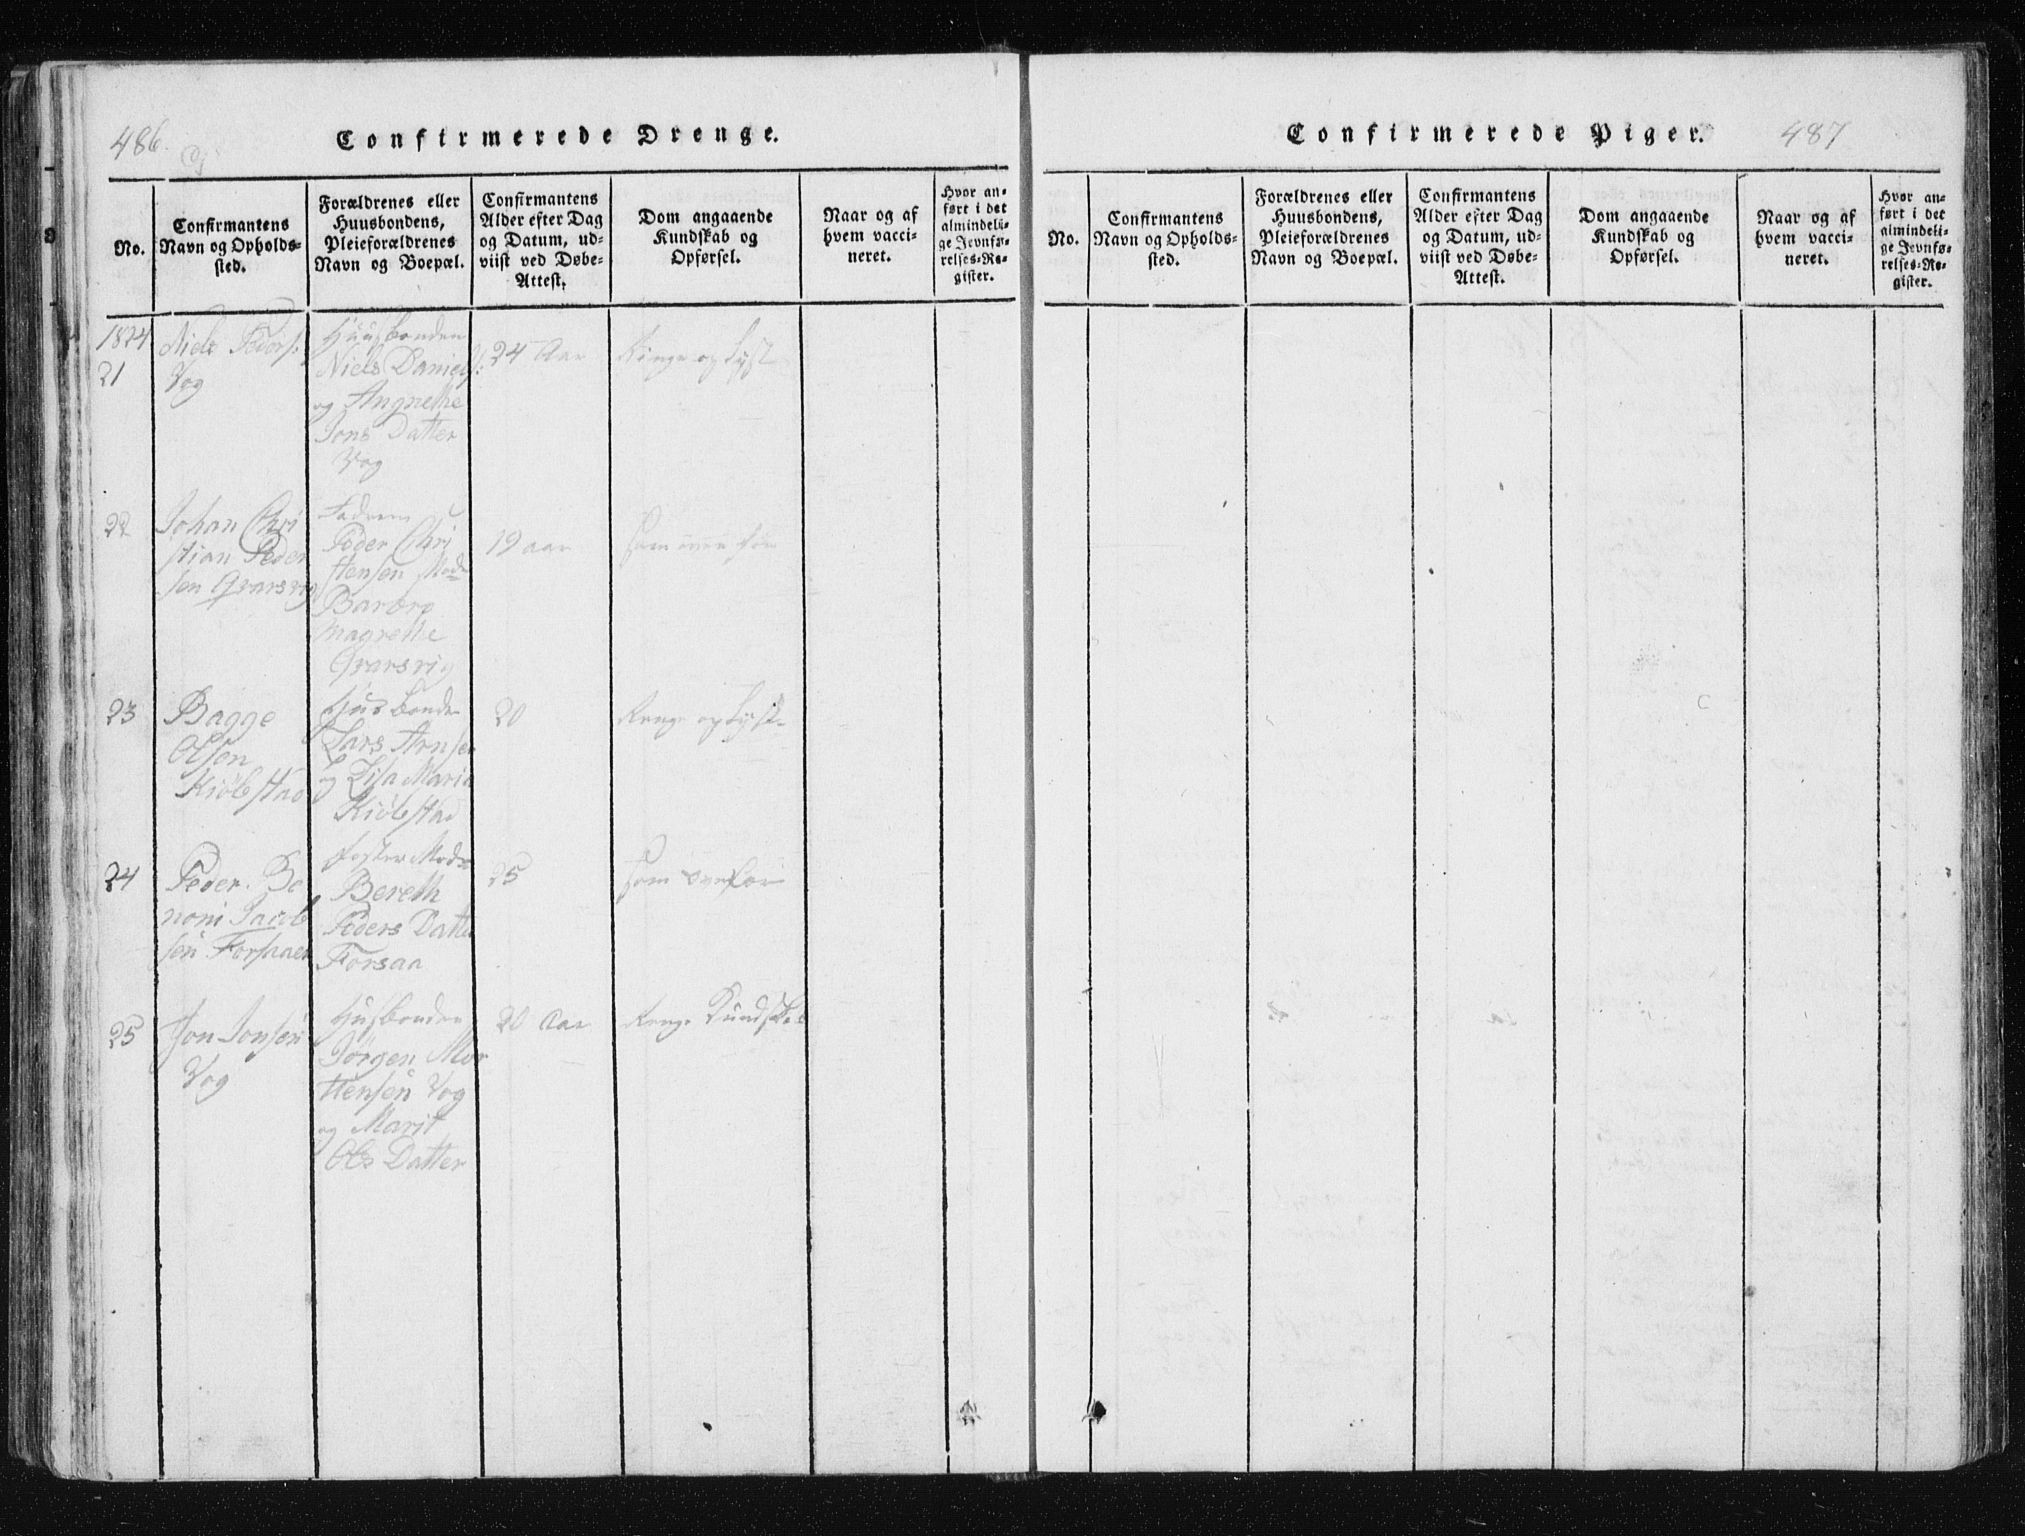 486.
Confirmerede Drenge.
No.
Confirmantens
Navn og Opholds-
sted.
Forældrenes eller
Huusbondens,
Pleieforældrenes
Navn og Boepæl.
Confirmantens
Alder efter Dag
og Datum, ud-
viist ved Døbe-
Attest.
Dom angaaende
Kundskab og
Opførsel.
Naar og af
hvem vacci-
neret.
Hvor an-
ført i det
almindeli-
ge Jevnfø-
relses-Re-
gister.
1824
21
Niels Peders:
Vog
Huusbonden
Niels Daniels:
og Angnethe
Jons Datter
Vog
24 Aar
22
Johan Chri
stian Peder
sen
Peder Chri
stensen Mod
Magrethe
19 aar
som oven for
23
Bagge
Olsen
Kiøbstad
Husbonde
Lars Arnsen
og Lisa Maria
Kiøbstad
20
24
Peder Be
noni Jacob
sen Forsaaen
Foster Mod
Bereth
Peders Datte
Forsaa
25
som ovenfor
25
Jon Jonsen
Vog
Husbonden
Jørgen Mor
tensen Vog
og Marit
Ols Datter
20 Aar
Ringe Kundskab
Confirmerede Piger.
487
No.
Confirmantens
Navn og Opholds-
sted.
Forældrenes eller
Huusbondens,
Pleieforældrenes
Navn og Boepæl.
Confirmantens
Alder efter Dag
og Datum, ud-
viist ved Døbe-
Attest.
Dom angaaende
Kundskab og
Opførsel.
Naar og af
hvem vacci-
neret.
Hvor an-
ført i det
almindeli-
ge Jevnfø-
relses-Re-
gister.